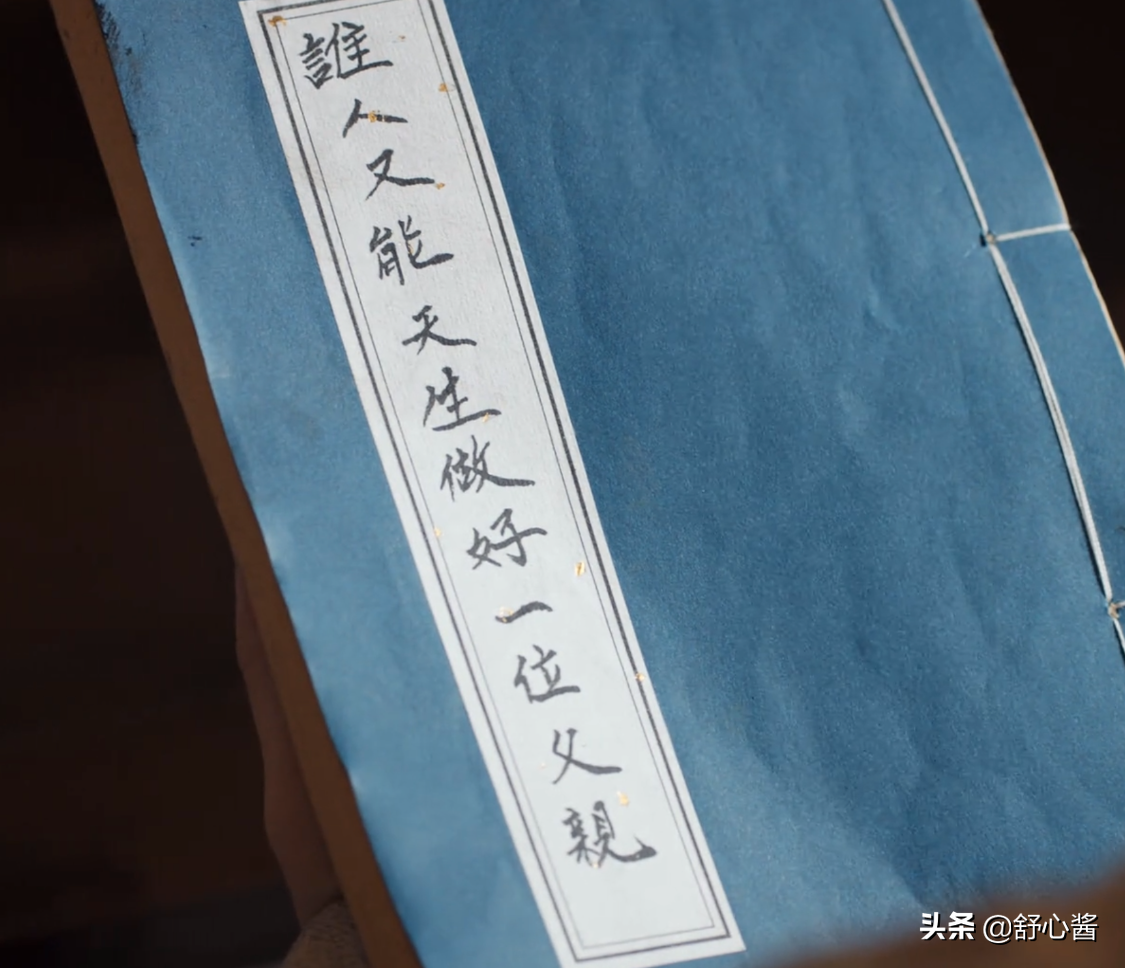 誰人又能天生做好一位父親
头条 @舒心酱